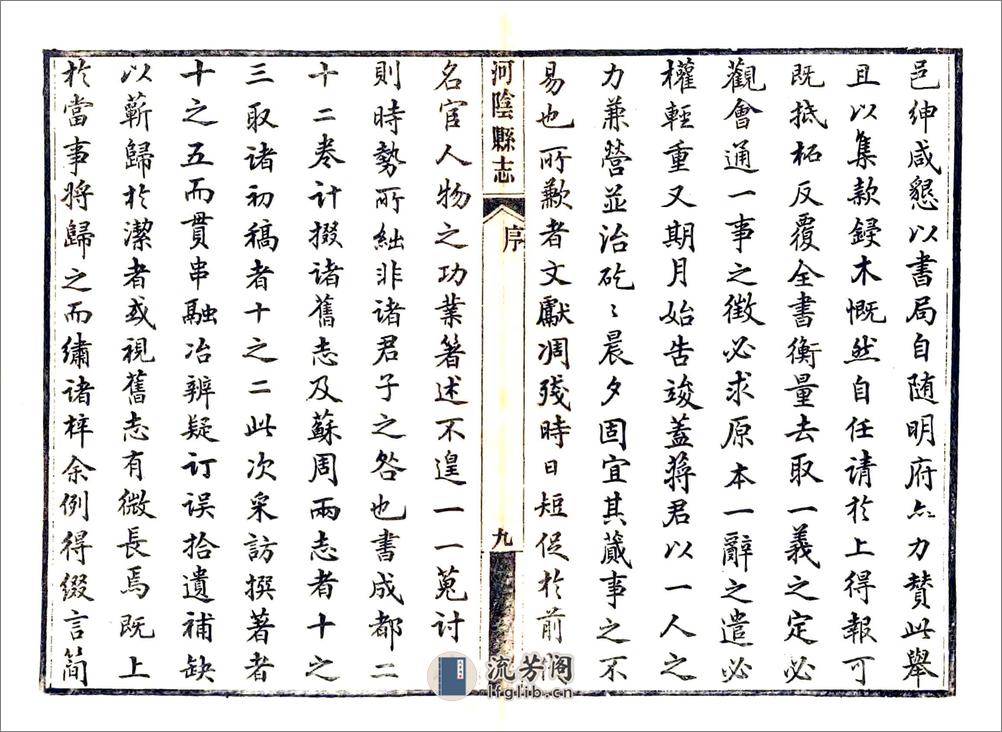 邑紳咸懇以書局自随明府亦力賛此舉
且以集款鋟木慨然自任請於上得報可
既抵柘反覆全書衡量去取一義之定必
觀會通一事之徴必求原本一辭之遣必
權輕重又期月始告竣蓋蔣君以一人之
力兼營並治矻〻晨夕固宜其蕆事之不
易也所歉者文獻凋殘時日短促於前
河陰縣志
序
九
名宦人物之功業著述不遑一一蒐討
則時勢所絀非諸君子之咎也書成都二
十二卷计掇諸舊志及蘇周兩志者十之
三取諸初稿者十之二此次采訪撰著者
十之五而貫串融冶辨疑订误拾遺補缺
以蘄歸於潔者或視舊志有微長焉既上
於當事將歸之而繡諸梓余例得綴言简
流芳阁
lfglib.cn